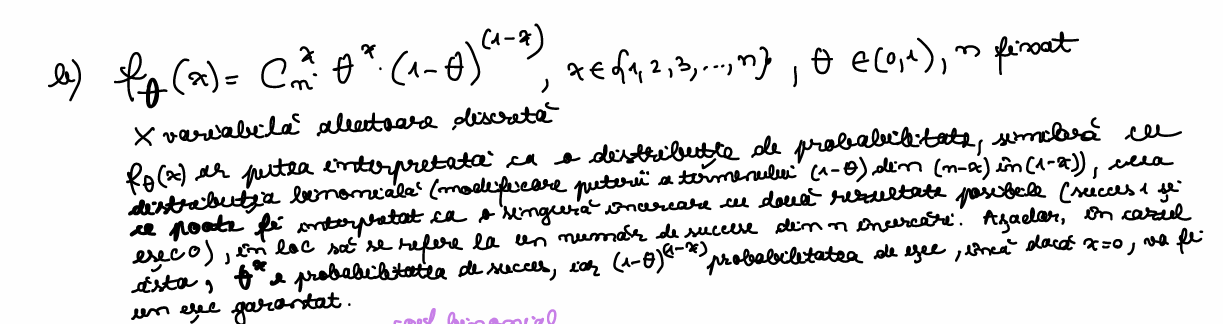 b) f_θ(x) = C_n^x · θ^x · (1-θ)^(1-x), x ∈ {1, 2, 3, ..., n}, θ ∈ (0,1), n fixat
X variabilă aleatoare discretă
f_θ(x) ar putea interpretată ca o distribuție de probabilitate, similară cu
distribuția binomială (modificare puterii a termenului (1-θ) din (n-x) în (1-x)), ceea
ce poate fi interpretat ca o singură încercare cu două rezultate posibile (succes 1 și
eșec 0), în loc să se refere la un număr de succese din n încercări. Așadar, în cazul
ăsta, θ^x e probabilitatea de succes, iar (1-θ)^(1-x) probabilitatea de eșec, încă dacă x=0, va fi
un eșec garantat.
caz binomial